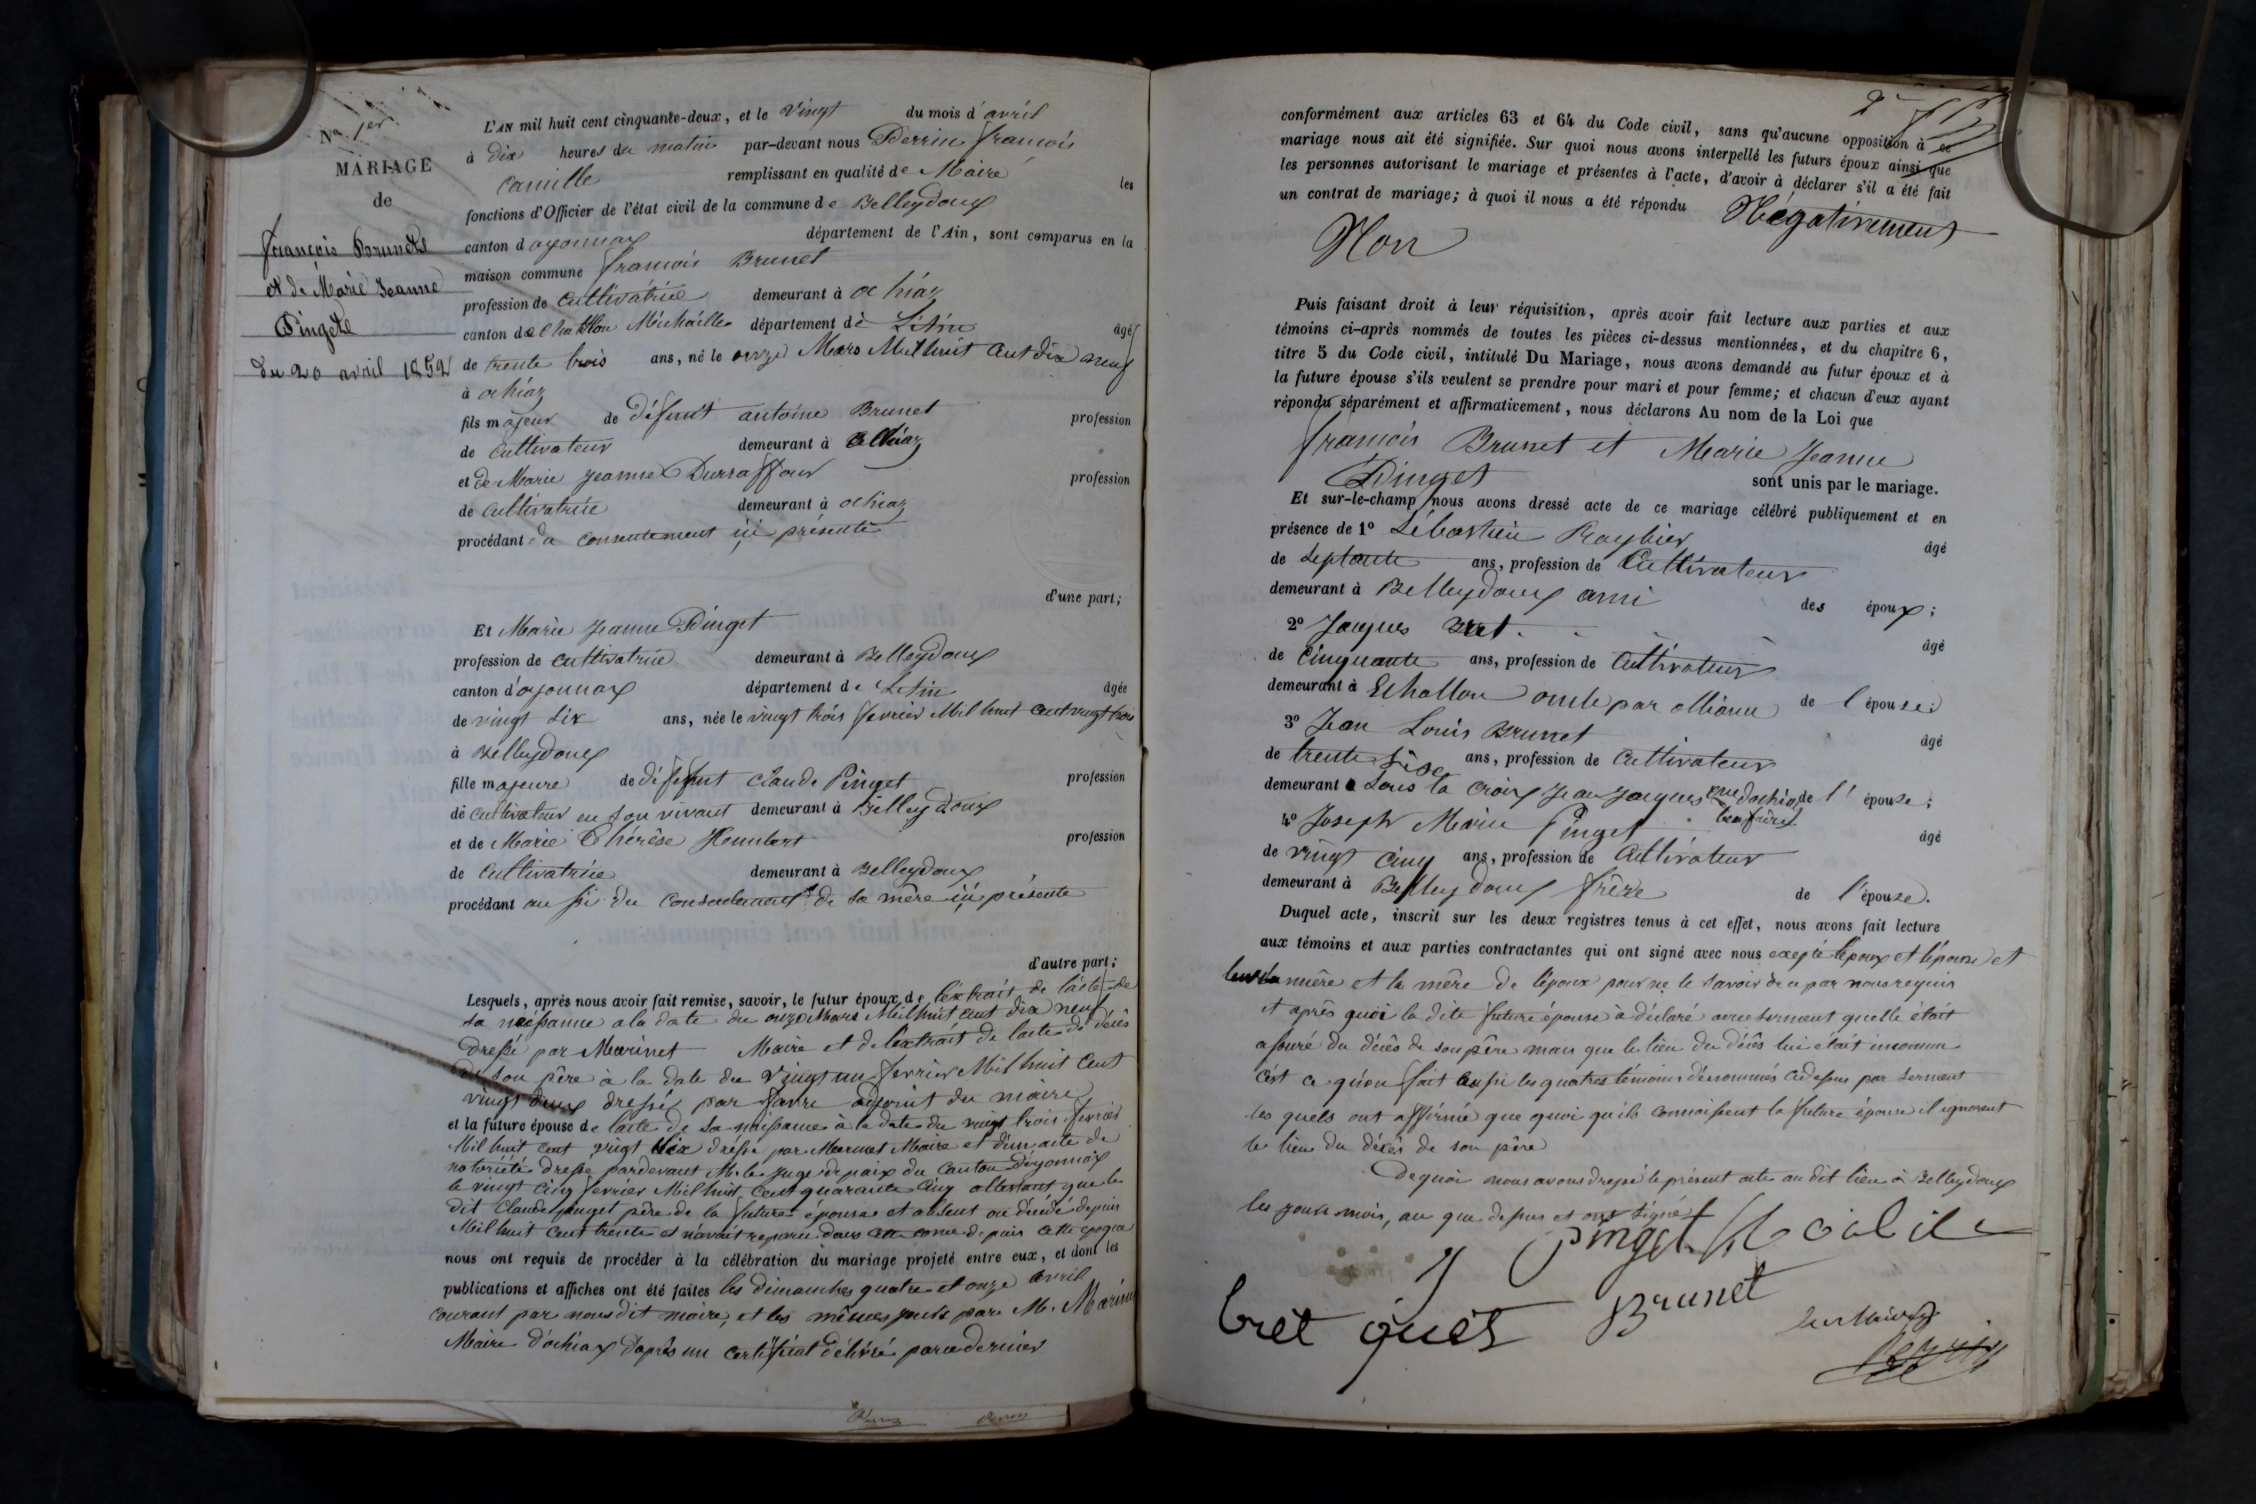 No 1er
MARIAGE
de
françois Brunet
et de Marie Jeanne
Pinget
du 20 avril 1852
L'AN mil huit cent cinquante-deux, et le vingt du mois d'avril
à dix heures du matin par-devant nous Perrin françois
camille remplissant en qualité de Maire les
fonctions d'Officier de l'état civil de la commune de Belleydoux
canton d'oyonnax département de l'Ain, sont comparus en la
maison commune françois Brunet
profession de cultivatrice demeurant à ochiaz
canton de Chatillon Michaille département de L'Ain âgé
de trente trois ans, né le onze Mars Mil huit cent dix neuf
à ochiaz
fils majeur de défunt antoine Brunet profession
de cultivateur demeurant à ochiaz
et de Marie jeanne Durraffour profession
de cultivatrice demeurant à ochiaz
procédant du consentement ici présente
d'une part;
Et Marie jeanne Pinget
profession de cultivatrice demeurant à Belleydoux
canton d'oyonnax département de L'Ain âgée
de vingt six ans, née le vingt trois fevrier Mil huit cent vingt trois
à Belleydoux
fille majeure de défunt claude Pinget profession
de cultivateur en son vivant demeurant à Belleydoux
et de Marie Thérèse Humbert profession
de cultivatrice demeurant à Belleydoux
procédant aussi du consentement de sa mère ici présente
d'autre part;
Lesquels, après nous avoir fait remise, savoir, le futur époux de l'extrait de l'acte de
sa naissance a la date du onze Mars Mil huit cent dix neuf
dressé par Marinet Maire et de l'extrait de l'acte de décès
de son père à la date du vingt un fevrier Mil huit cent
vingt deux dressés par favre adjoint du maire
et la future épouse de l'acte de sa naissance à la date du vingt trois fevrier
Mil huit cent vingt six dressé par Mermet Maire et d'un acte de
notoriété dressé pardevant M. le Juge de paix du canton d'oyonnax
le vingt cinq fevrier Mil huit cent quarante cinq attestant que le
dit Claude pinget père de la future épouse est absent ou décédé depuis
Mil huit cent trente et n'avait reparu dans cette comue depuis cette epoque
nous ont requis de procéder à la célébration du mariage projeté entre eux, et dont les
publications et affiches ont été faites les dimanches quatre et onze avril
courant par nous dit maire, et les mêmes jours par M. Marinet
Maire d'ochiaz d'après un certificat délivré par ce dernier
conformément aux articles 63 et 64 du Code civil, sans qu'aucune opposition à ce
mariage nous ait été signifiée. Sur quoi nous avons interpellé les futurs époux ainsi que
les personnes autorisant le mariage et présentes à l'acte, d'avoir à déclarer s'il a été fait
un contrat de mariage; à quoi il nous a été répondu Négativement
Non
Puis faisant droit à leur réquisition, après avoir fait lecture aux parties et aux
témoins ci-après nommés de toutes les pièces ci-dessus mentionnées, et du chapitre 6,
titre 5 du Code civil, intitulé Du Mariage, nous avons demandé au futur époux et à
la future épouse s'ils veulent se prendre pour mari et pour femme; et chacun d'eux ayant
répondu séparément et affirmativement, nous déclarons Au nom de la Loi que
françois Brunet et Marie Jeanne
Pinget sont unis par le mariage.
Et sur-le-champ nous avons dressé acte de ce mariage célébré publiquement et en
présence de 1° Sébastien Roybier âgé
de septante ans, profession de Cultivateur
demeurant à Belleydoux ami des époux;
2° Jacques Bret âgé
de cinquante ans, profession de Cultivateur
demeurant à Echallon oncle par alliance de l'épouse;
3° Jean Louis Brunet âgé
de trente six ans, profession de Cultivateur
demeurant à Sous la Croix Jean Jacques de l'épouse;
beau frère
4° Joseph Marie Pinget âgé
de vingt cinq ans, profession de Cultivateur
demeurant à Belleydoux frère de l'épouse.
Duquel acte, inscrit sur les deux registres tenus à cet effet, nous avons fait lecture
aux témoins et aux parties contractantes qui ont signé avec nous exepté l'époux et l'épouse et
la mère et la mère de l'époux pour ne le savoir de ce par nous requis
et après quoi la dite future épouse à déclaré avec serment quelle était
assuré du décès de son père mais que le lieu du décès lui était inconnu
c'est ce qu'on fait aussi les quatres témoins dénommés cidessus par serment
les quels ont affirmé que quoi qu'ils connoissent la future épouse il ignorent
le lieu du décès de son père
Dequoi nous avons dressé le présent acte au dit lieu à Belleydoux
les jour mois, an que dessus et ont signé
J pinget
bret Brunet
Le Maire
Perrin